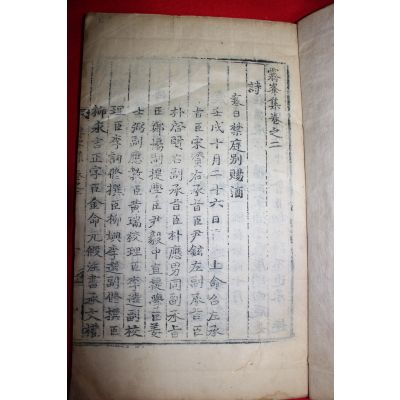 霽峯集卷之二
詩
日禁庭別賜酒
壬戌十月二十六日 上命召左承
旨臣宋賛右承旨臣尹鉉左副承旨臣
朴啓賢右副承旨臣朴應男同副承旨
臣鄭惕副提學臣尹毅中直提學臣姜
士弼副應教臣黃瑞校理臣李遴副校
理臣李訒修撰臣柳李選副修撰臣
柳永吉正字臣金命元假注書承文權